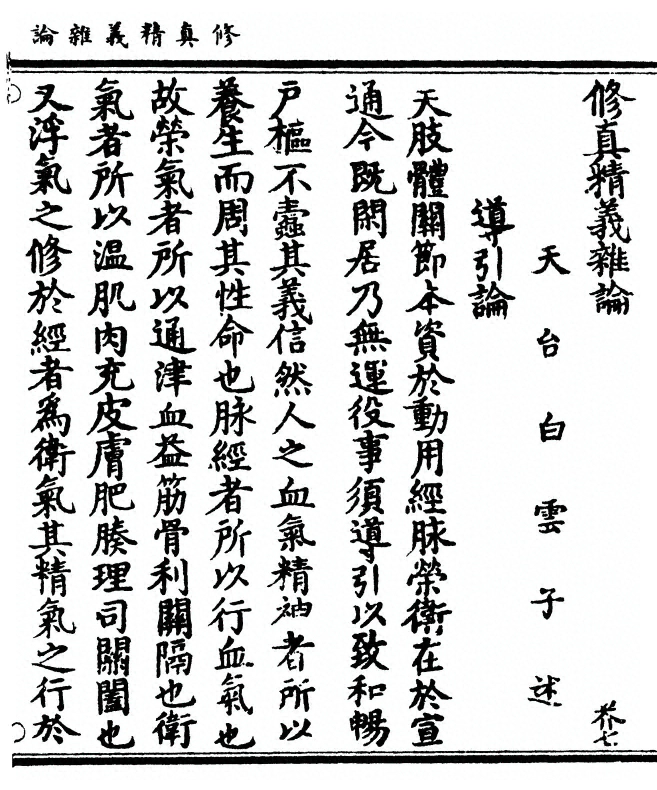 修真精義雜論
修真精義雜論 芥七
天台白雲子述
導引論
夫肢體關節本資於動用經脉榮衛在於宣
通今既閑居乃無運役事須導引以致和暢
戶樞不蠹其義信然人之血氣精神者所以
養生而周其性命也脉經者所以行血氣也
故榮氣者所以通津血益筋骨利關隔也衛
氣者所以温肌肉充皮膚肥腠理司關闔也
又浮氣之修於經者爲衛氣其精氣之行於